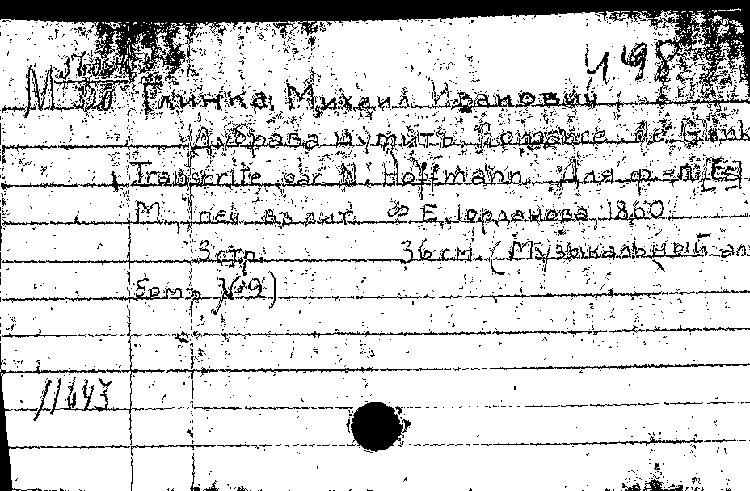 498
М Глинка, Михаил Иванович
Дубрава шумитъ. Romance de Glink
Transcrite par N. Hoffmann. Для ф.-п.
М. печ. в лит. Ф Е. Іорданова 1860.
3 стр. 36 см. (Музыкальный аль
бомъ №9)
11643